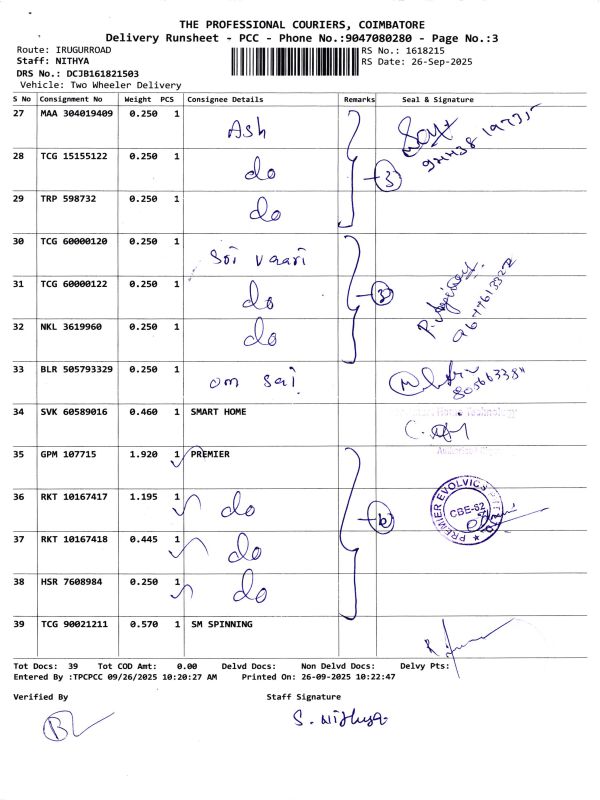 THE PROFESSIONAL COURIERS, COIMBATORE
Delivery Runsheet - PCC - Phone No.:9047080280 - Page No.:3
Route: IRUGURROAD
RS No.: 1618215
Staff: NITHYA
RS Date: 26-Sep-2025
DRS No.: DCJB161821503
Vehicle: Two Wheeler Delivery
S No Consignment No Weight PCS Consignee Details Remarks Seal & Signature
27 MAA 304019409 0.250 1 Ash
28 TCG 15155122 0.250 1 do 3
29 TRP 598732 0.250 1 do
30 TCG 60000120 0.250 1
31 TCG 60000122 0.250 1 do 3
32 NKL 3619960 0.250 1 do
33 BLR 505793329 0.250 1 om sai
34 SVK 60589016 0.460 1 SMART HOME
35 GPM 107715 1.920 1 PREMIER
36 RKT 10167417 1.195 1 do
PREMIER EVOLVICS
CBE-62
37 RKT 10167418 0.445 1 do
38 HSR 7608984 0.250 1 do
39 TCG 90021211 0.570 1 SM SPINNING
Tot Docs: 39 Tot COD Amt: 0.00 Delvd Docs: Non Delvd Docs: Delvy Pts:
Entered By :TPCPCC 09/26/2025 10:20:27 AM Printed On: 26-09-2025 10:22:47
Verified By Staff Signature
S. Nithya